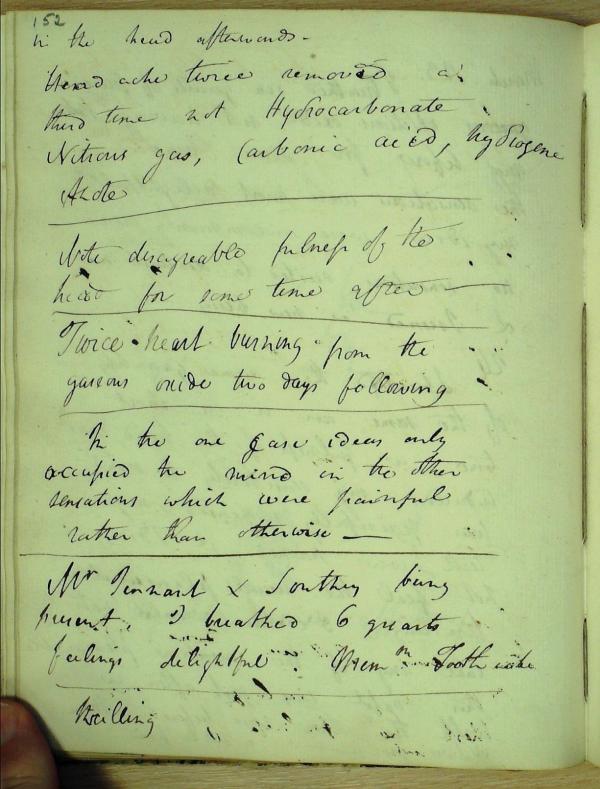 152
in the head afterwards -
Head ache twice removed a
third time not Hydrocarbonate
Nitrous gas, Carbonic acid, hydrogene
Azote
Note disagreable fulness of the
head for some time after —
Twice heart burning from the
gaseous oxide two days following
In the one case ideas only
occupied the mind in the other
sensations which were painful
rather than otherwise —
Mr Tennant & Southey being
present, I breathed 6 quarts
feelings delightful. Mem m Tooth ache
thrilling